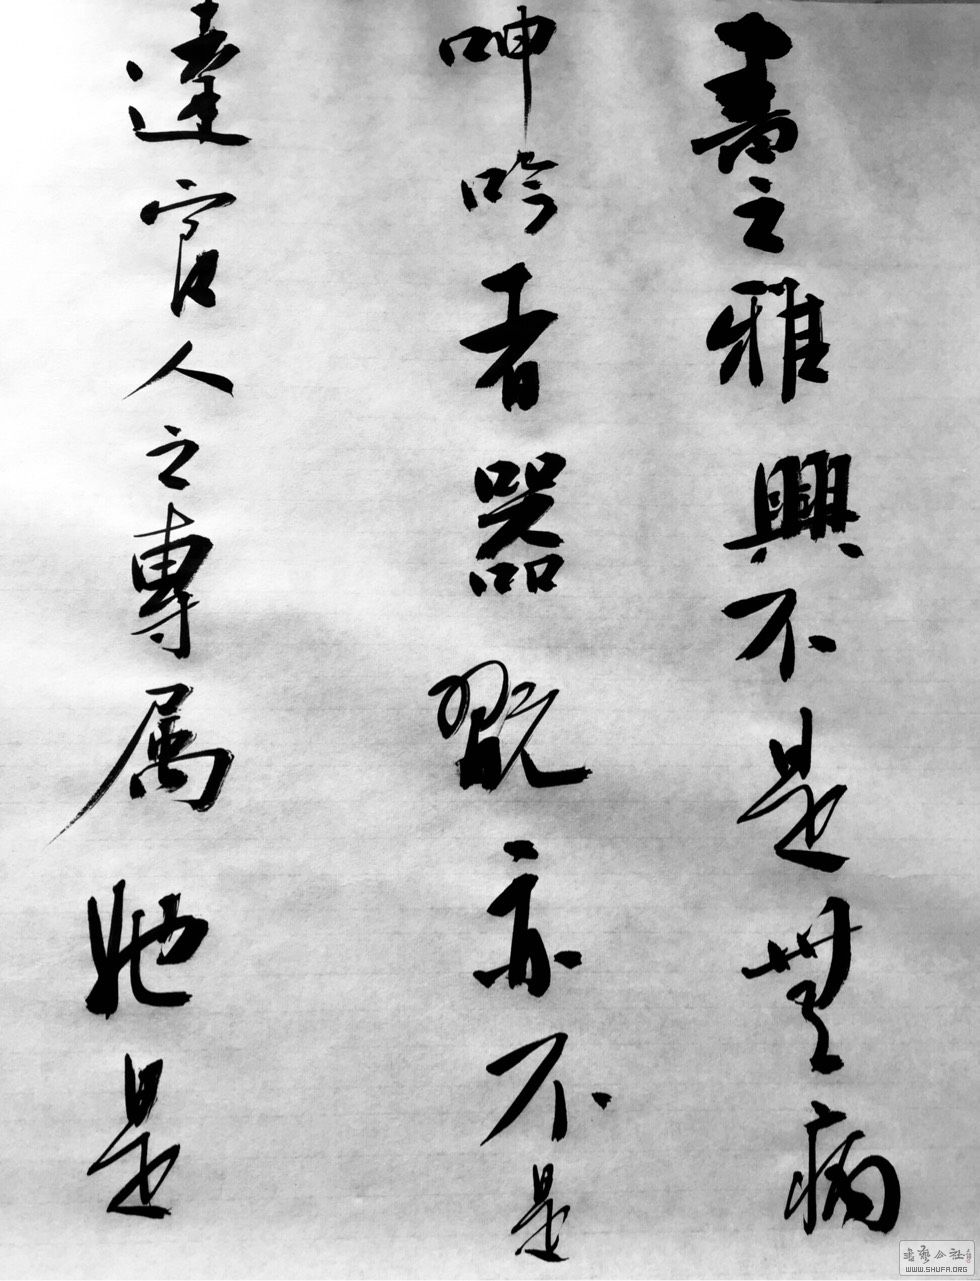 之雅興不是無病
呻吟者器翫亦不是
達官人之專属她是
WWW.SHUFA.ORG